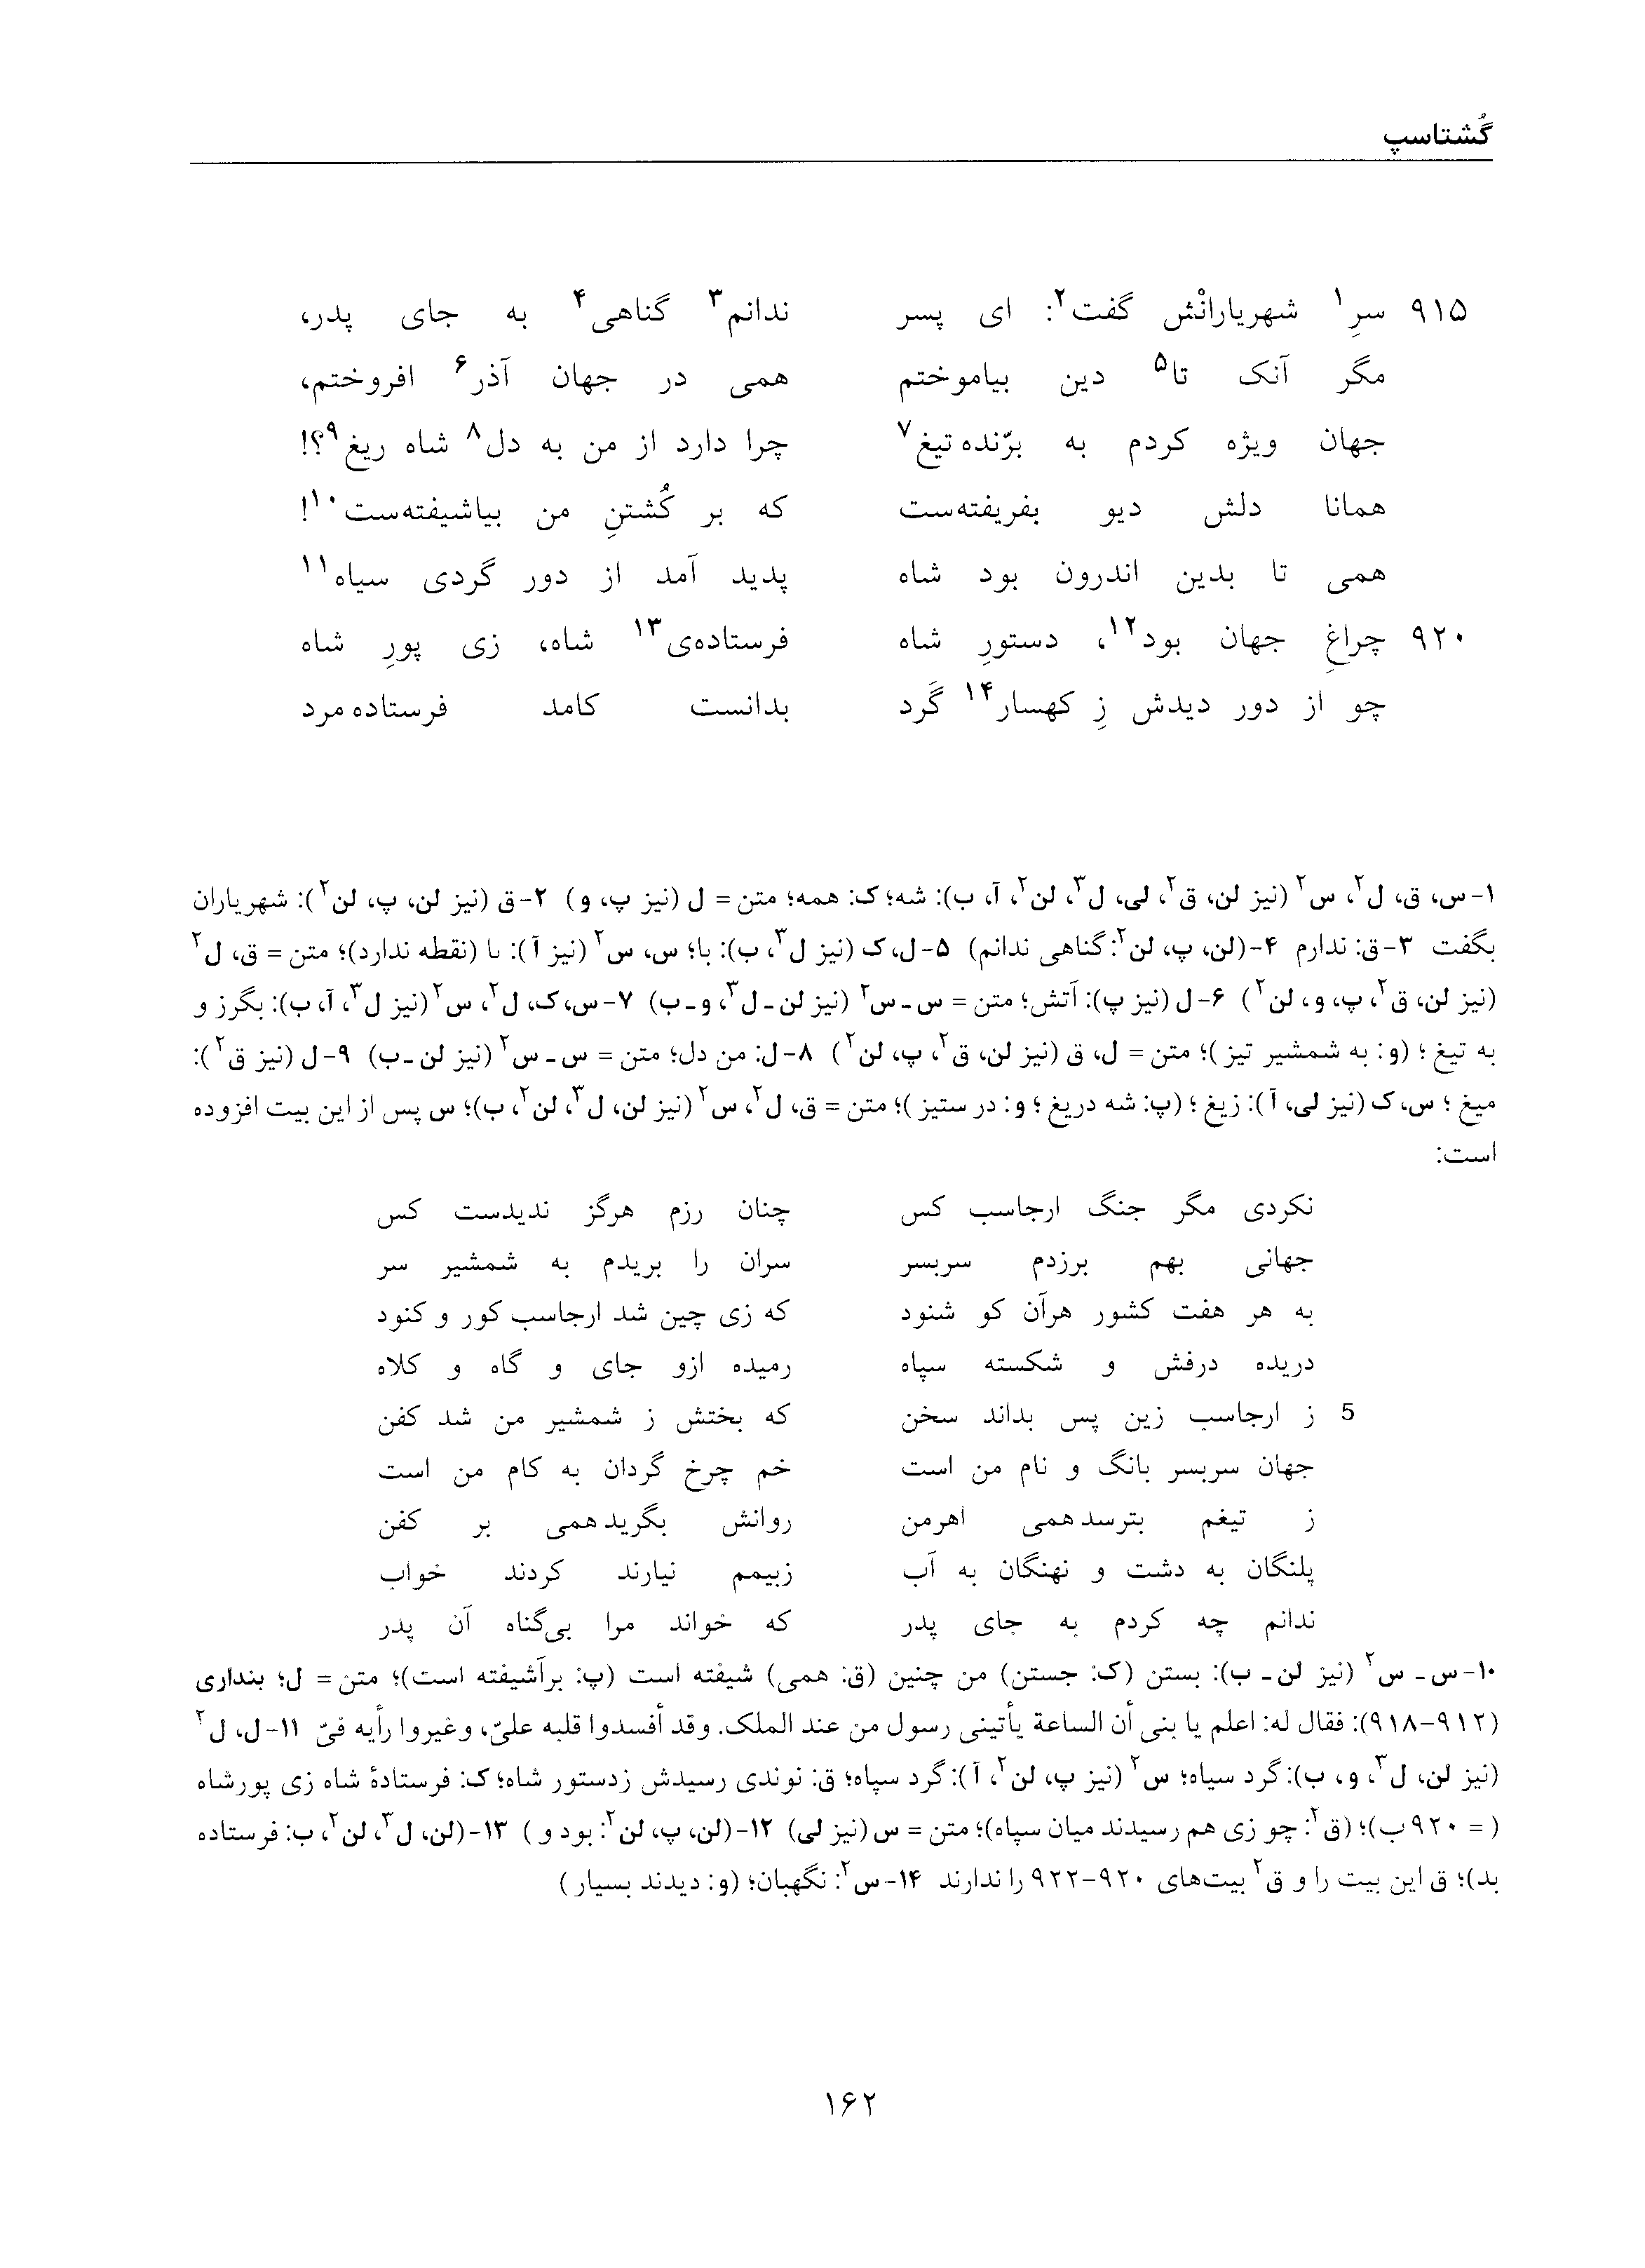 گُشتاسپ
۹۱۵ سرِ۱ شهریارانْش گفت۲: ای پسر ندانم۳ گناهی۴ به جای پدر،
مگر آنک تا۵ دین بیاموختم همی در جهان آذر۶ افروختم،
جهان ویژه کردم به برّنده تیغ۷ چرا دارد از من به دل۸ شاه ریغ۹؟!
همانا دلش دیو بفریفته‌ست که بر کُشتنِ من بیاشیفته‌ست۱۰!
همی تا بدین اندرون بود شاه پدید آمد از دور گردی سیاه۱۱
۹۲۰ چراغِ جهان بود۱۲، دستورِ شاه فرستاده‌ی۱۳ شاه، زی پورِ شاه
چو از دور دیدش زِ کهسار۱۴ گَرد بدانست کامد فرستاده مرد
۱-س، ق، ل۲، س۲ (نیز لن، ق۲، لی، ل۳، لن۲، آ، ب): شه؛ ک: همه؛ متن = ل (نیز پ، و) ۲-ق (نیز لن، پ، لن۲): شهریاران
بگفت ۳-ق: ندارم ۴-(لن، پ، لن۲: گناهی ندانم) ۵-ل، ک (نیز ل۳، ب): با؛ س، س۲ (نیز آ): ىا (نقطه ندارد)؛ متن = ق، ل۲
(نیز لن، ق۲، پ، و، لن۲) ۶-ل (نیز پ): آتش؛ متن = س ـ س۲ (نیز لن ـ ل۳، و ـ ب) ۷-س، ک، ل۲، س۲ (نیز ل۳، آ، ب): بگرز و
به تیغ؛ (و: به شمشیر تیز)؛ متن = ل، ق (نیز لن، ق۲، پ، لن۲) ۸-ل: من دل؛ متن = س ـ س۲ (نیز لن ـ ب) ۹-ل (نیز ق۲):
میغ؛ س، ک (نیز لی، آ): زیغ؛ (پ: شه دریغ؛ و: در ستیز)؛ متن = ق، ل۲، س۲ (نیز لن، ل۳، لن۲، ب)؛ س پس از این بیت افزوده
است:
نکردی مگر جنگ ارجاسب کس چنان رزم هرگز ندیدست کس
جهانی بهم برزدم سربسر سران را بریدم به شمشیر سر
به هر هفت کشور هرآن کو شنود که زی چین شد ارجاسب کور و کنود
دریده درفش و شکسته سپاه رمیده ازو جای و گاه و کلاه
5 ز ارجاسب زین پس بداند سخن که بختش ز شمشیر من شد کفن
جهان سربسر بانگ و نام من است خم چرخ گردان به کام من است
ز تیغم بترسد همی اهرمن روانش بگرید همی بر کفن
پلنگان به دشت و نهنگان به آب زبیمم نیارند کردند خواب
ندانم چه کردم به جای پدر که خواند مرا بی‌گناه آن پدر
۱۰-س ـ س۲ (نیز لن ـ ب): بستن (ک: جستن) من چنین (ق: همی) شیفته است (پ: برآشیفته است)؛ متن = ل؛ بنداری
(۹۱۲-۹۱۸): فقال له: اعلم یا بنی أن الساعة یأتینی رسول من عند الملک. وقد أفسدوا قلبه علیّ، وغیروا رأیه فیّ ۱۱-ل، ل۲
(نیز لن، ل۳، و، ب): گرد سیاه؛ س۲ (نیز پ، لن۲، آ): گرد سپاه؛ ق: نوندی رسیدش زدستور شاه؛ ک: فرستادهٔ شاه زی پورشاه
( = ۹۲۰ ب)؛ (ق۲: چو زی هم رسیدند میان سپاه)؛ متن = س (نیز لی) ۱۲-(لن، پ، لن۲: بود و ) ۱۳-(لن، ل۳، لن۲، ب: فرستاده
بد)؛ ق این بیت را و ق۲ بیت‌های ۹۲۰-۹۲۲ را ندارند ۱۴-س۲: نگهبان؛ (و: دیدند بسیار)
۱۶۲